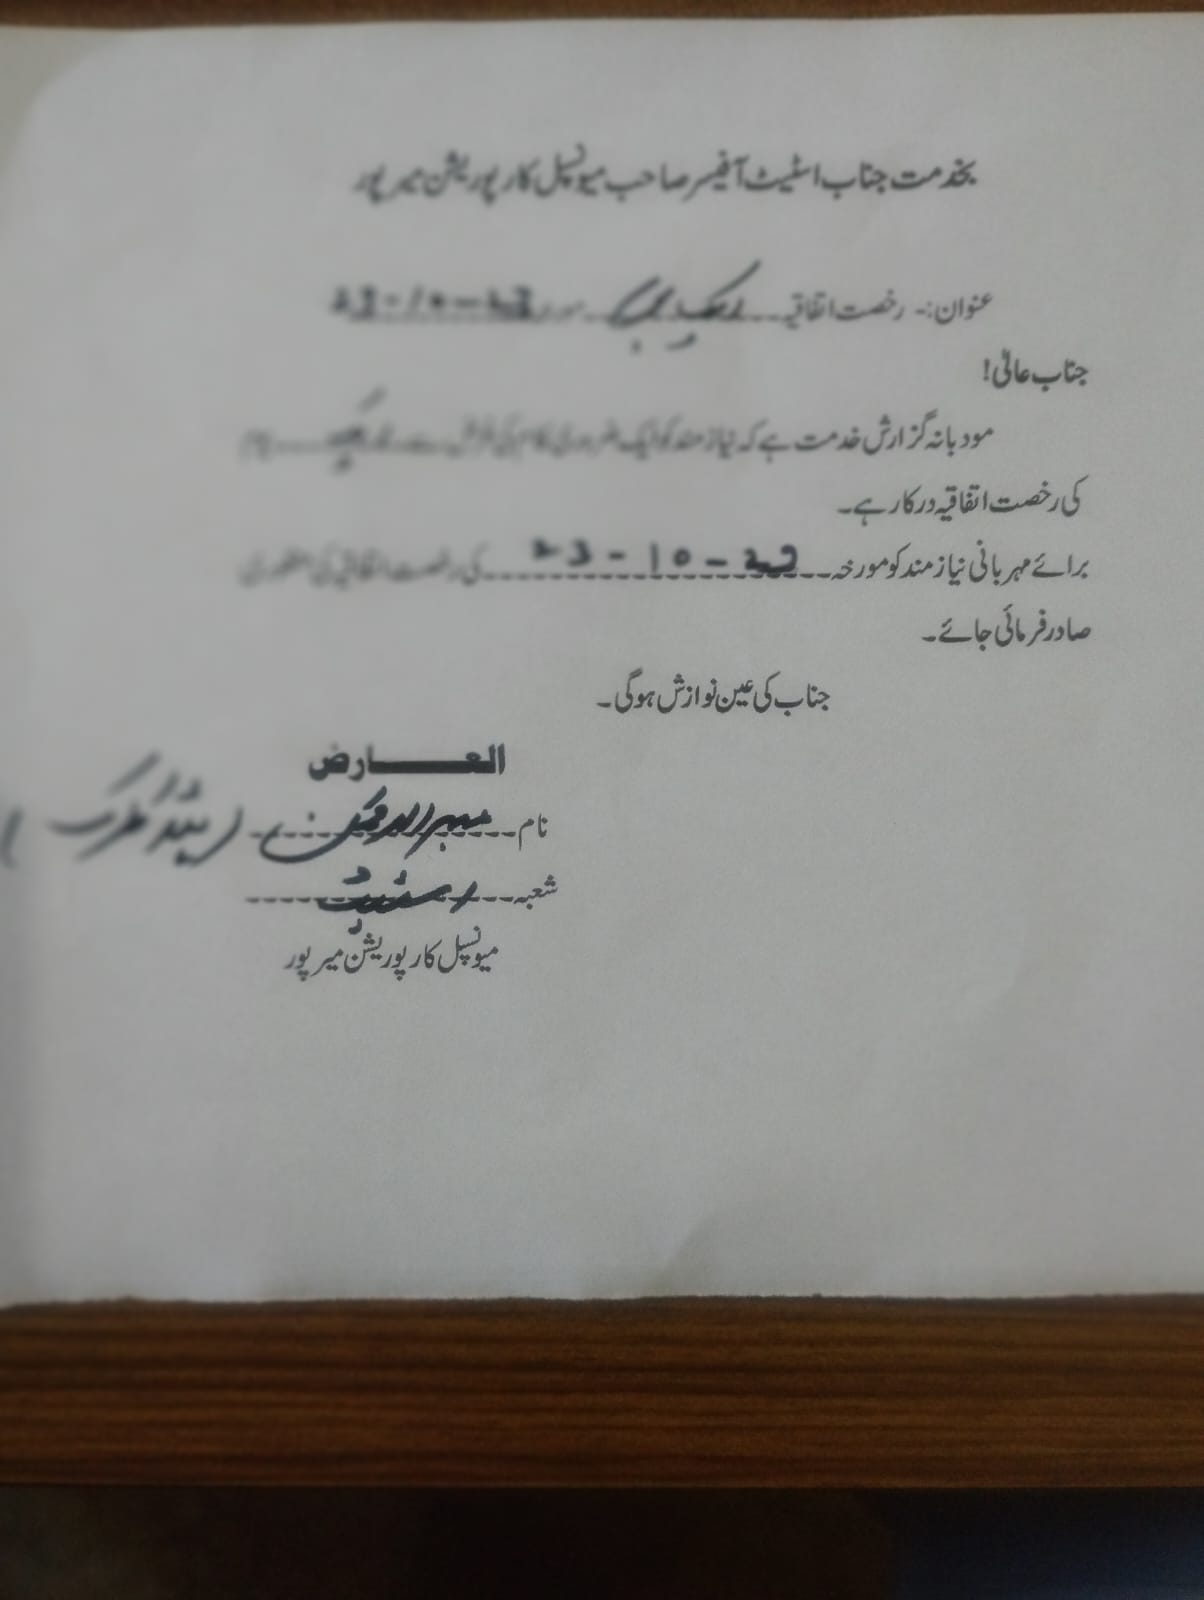 بخدمت جناب اسٹیٹ آفیسر صاحب میونسپل کارپوریشن میرپور
عنوان:- رخصت اتفاقیہ ایک یوم مورخہ 23-10-23
جناب عالی!
مودبانہ گزارش خدمت ہے کہ نیاز مند کو ایک ضروری کام کی غرض سے ایک یوم
کی رخصت اتفاقیہ درکار ہے۔
برائے مہربانی نیاز مند کو مورخہ 23-10-23 کی رخصت اتفاقیہ کی منظوری
صادر فرمائی جائے۔
جناب کی عین نوازش ہوگی۔
العارض
نام (ہیڈ کلرک)
شعبہ اسٹیٹ
میونسپل کارپوریشن میرپور